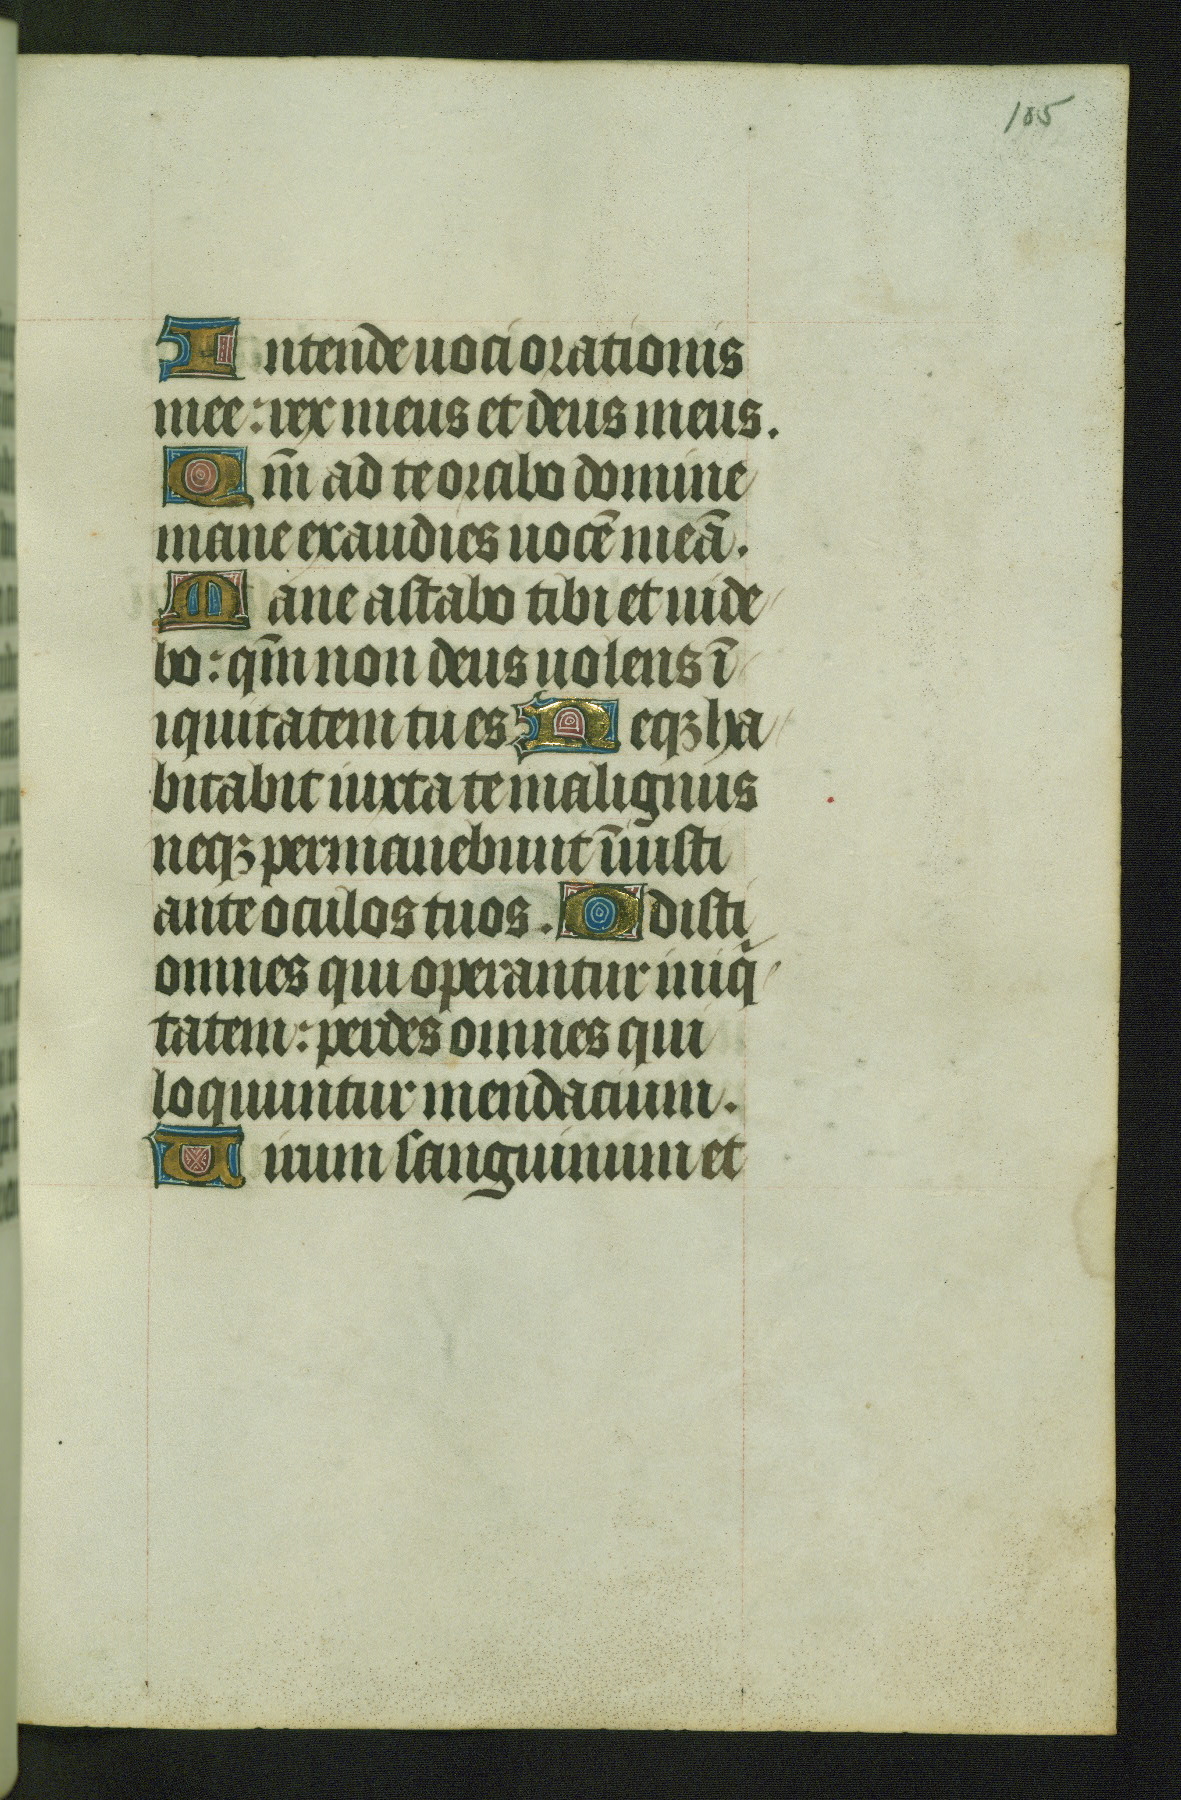 105
Intende uoci orationis
mee : rex meus et deus meus.
Qm̄ ad te orabo domine
mane exaudies uocē meā.
Mane astabo tibi et uide
bo : qm̄ non deus uolens ī
iquitatem tu es Neqꝫ ha
bitabit iuxta te malignus
neqꝫ permanebunt īiusti
ante oculos tuos. Odisti
omnes qui operantur iniqͥ
tatem : perdes omnes qui
loquuntur mendacium.
Uirum sanguinum et